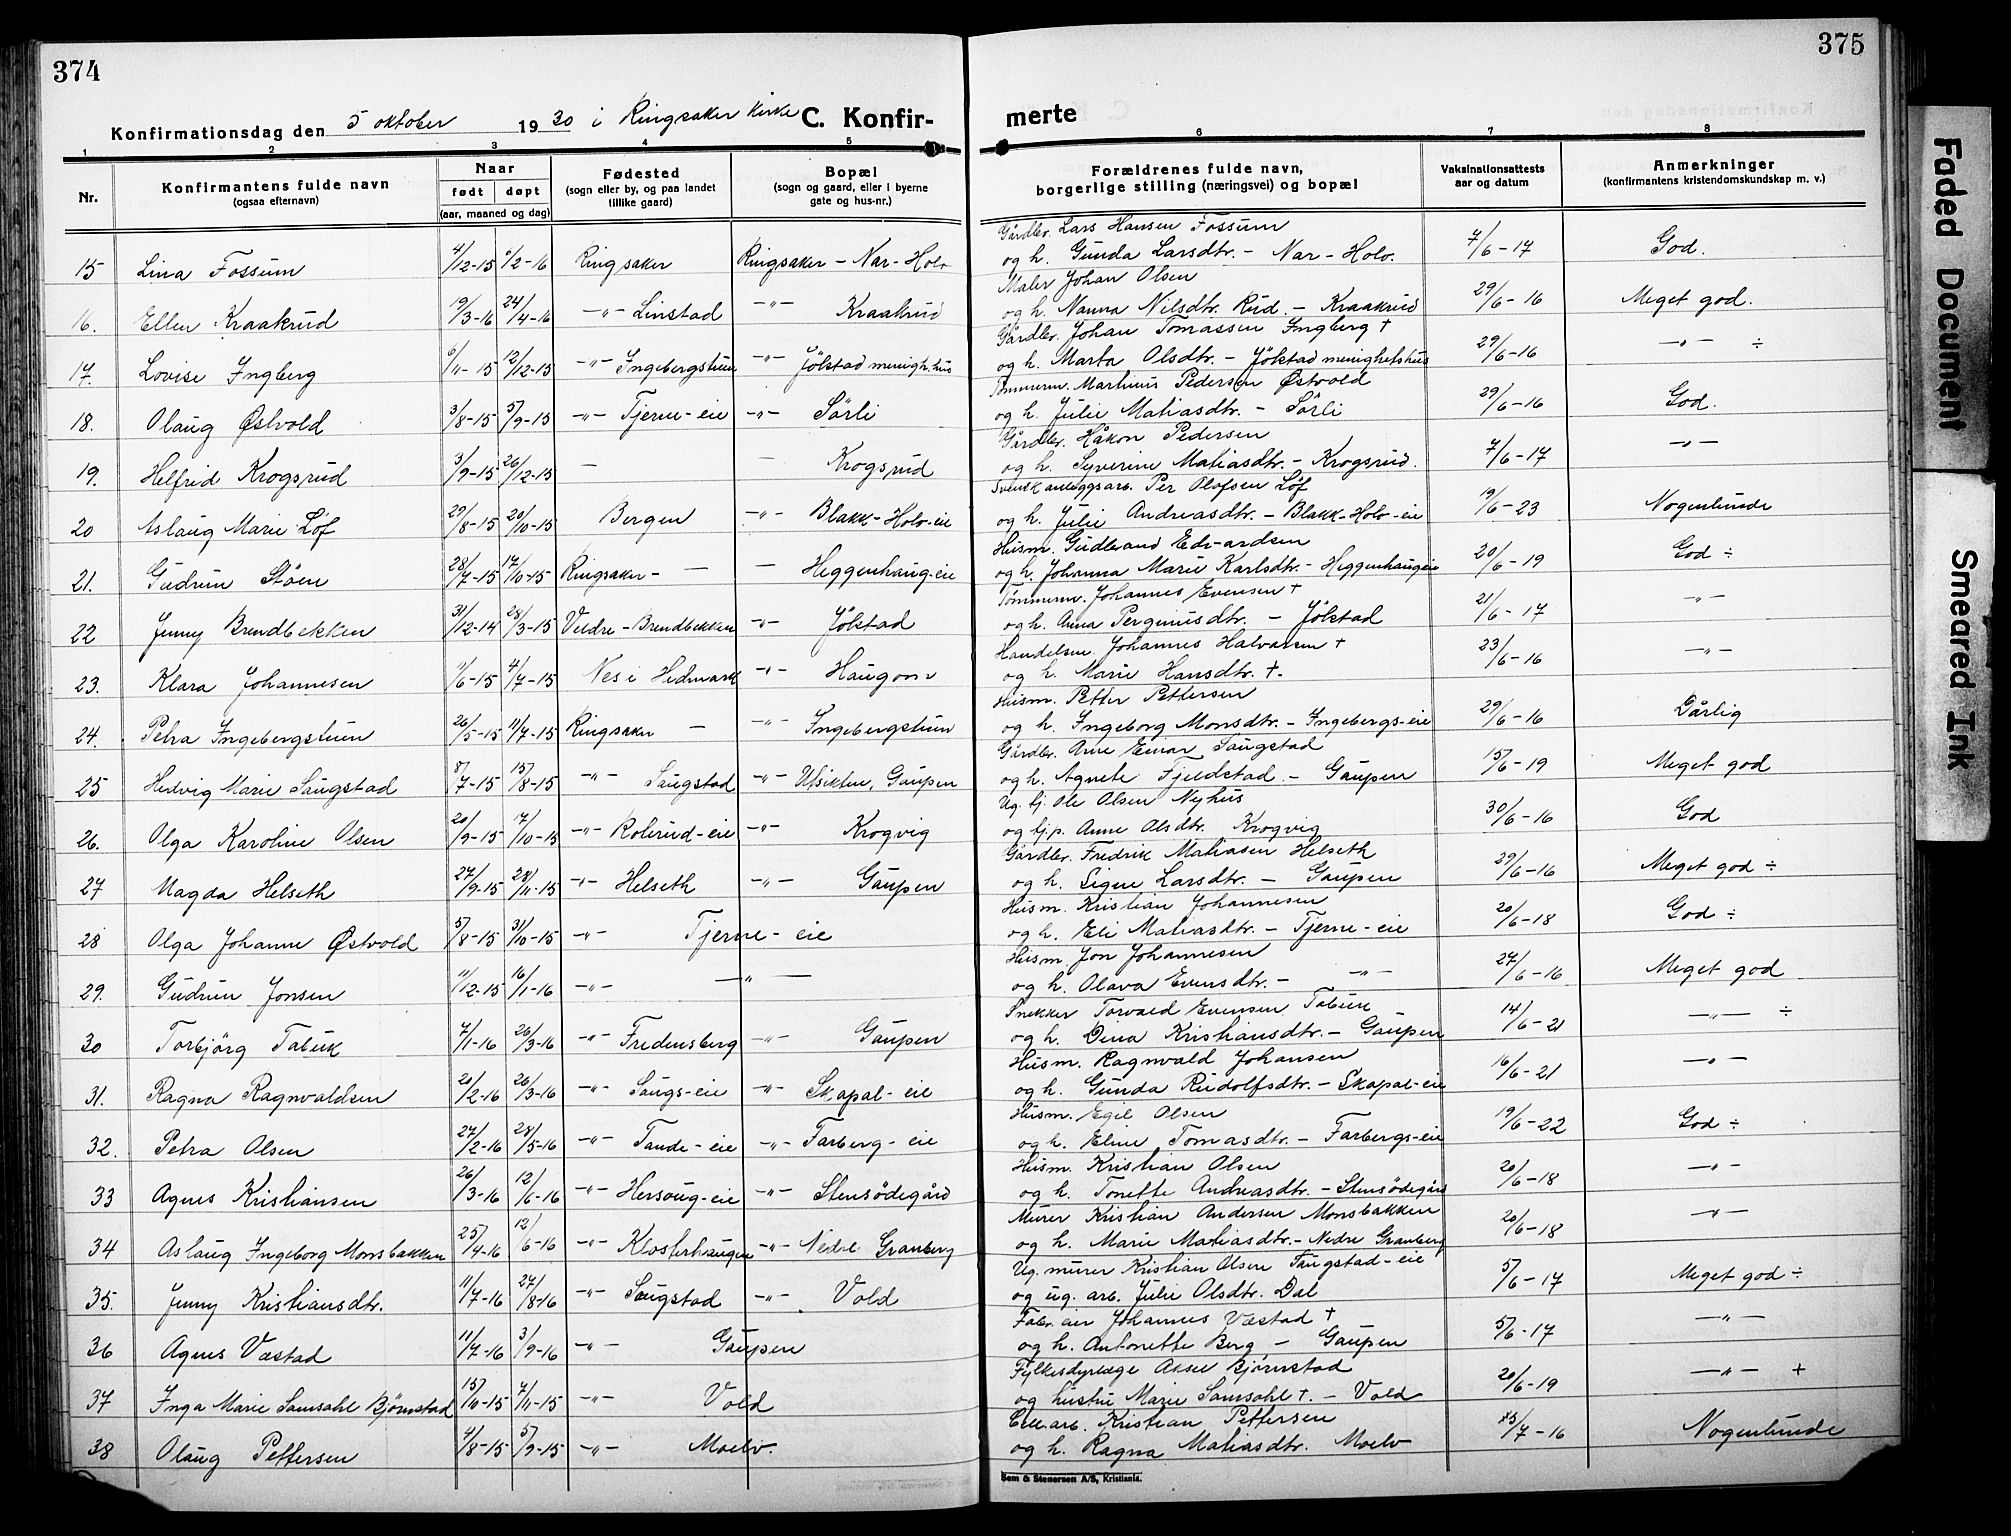 374
375
Konfirmationsdag den 5 oktober 1930 i Ringsaker kirke C. Konfir-
merte
1 2 3 4 5 6 7 8
Nr.
Konfirmantens fulde navn
(ogsaa efternavn)
Naar
født døpt
(aar, maaned og dag)
Fødested
(sogn eller by, og paa landet
tillike gaard)
Bopæl
(sogn og gaard, eller i byerne
gate og hus-nr.)
Forældrenes fulde navn,
borgerlige stilling (næringsvei) og bopæl
Vaksinationsattests
aar og datum
Anmerkninger
(konfirmantens kristendomskundskap m. v.)
Gårdbr. Lars Hansen Fossum
15 Lina Fossum 4/12-15 6/2-16 Ringsaker Ringsaker - Nar-Holo og h. Gunda Larsdtr. - Nar-Holo. 7/6-17 God.
Maler Johan Olsen
16. Ellen Kraakrud 19/3-16 24/4-16 -"- Linstad -"- Kraakrud og h. Nanna Nilsdtr. Rud. - Kraakrud 29/6-16 Meget god.
Gårdbr. Johan Tomassen Ingberg +
17. Lovise Ingberg 6/11-15 12/12-15 -"- Ingebergstuen -"- Jölstad menigh.hus og h. Marta Olsdtr. - Jölstad menighetshus 29/6-16 -"- ÷
Tömmerm. Martinus Pedersen Østvold
18. Olaug Østvold 3/8-15 5/9-15 -"- Tjerne-eie -"- Sörli og h. Julie Matiasdtr. - Sörli 29/6-16 God.
Gårdbr. Håkon Pedersen
19. Helfrid Krogsrud 3/9-15 26/12-15 - - Krogsrud og h. Syverine Matiasdtr. - Krogsrud. 7/6-17 -"-
Svensk anleggsarb. Per Olofsen Löf
20 Aslaug Marie Löf 29/8-15 20/10-15 Bergen -"- Blakk-Holo-eie og h. Julie Andreasdtr. - Blakk-Holo-eie 19/6-23 Nogenlunde
Husm. Gudbrand Edvardsen
21. Gudrun Stöen 28/7-15 17/10-15 Ringsaker - - - Heggenhaug-eie og h. Johanna Marie Karlsdtr. - Heggenhaugeie 20/6-19 God ÷
Tömmerm. Johannes Evensen +
22 Jenny Brendbekken 31/12-14 28/3-15 Veldre - Brendbekken -"- Jölstad og h. Anna Perginusdtr. - Jölstad 21/6-17 -"-
Handelsm. Johannes Halvorsen +
23. Klara Johannesen 1/6-15 4/7-15 Nes i Hedmark -"- Haugom og h. Marie Hansdtr. +. 23/6-16 -"-
Husm. Petter Pettersen
24. Petra Ingebergstuen 26/5-15 11/7-15 Ringsaker - -"- Ingebergstuen og h. Ingeborg Monsdtr. - Ingebergs-eie 29/6-16 Dårlig
Gårdbr. Arne Einar Saugstad
25 Hedvig Marie Saugstad 8/7-15 15/8-15 -"- Saugstad -"- Utsikten, Gaupen og h. Agnete Fjeldstad. - Gaupen 15/6-19 Meget god
Ug. tj. Ole Olsen Nyhus
26. Olga Karoline Olsen 20/9-15 7/10-15 -"- Bolerud-eie -"- Krogvig og tj.p. Anne Olsdtr. Krogvig 30/6-16 God
Gårdbr. Fredrik Matiasen Helseth
27 Magda Helseth 27/9-15 28/11-15 -"- Helseth -"- Gaupen og h. Signe Larsdtr. - Gaupen 29/6-16 Meget god ÷
Husm. Kristian Johannesen
28 Olga Johanne Østvold 5/8-15 31/10-15 -"- Tjerne-eie og h. Eli Matiasdtr. - Tjerne-eie 20/6-18 God ÷
Husm. Jon Johannesen
29. Gudrun Jonsen 11/12-15 16/1-16 -"- -"- og h. Olava Evensdtr. - -"- 27/6-16 Meget god
Snekker Torvald Evensen Tabuk
30 Torbjörg Tabuk 7/1-16 26/3-16 -"- Fredensberg -"- Gaupen og h. Dina Kristiansdtr. - Gaupen 14/6-21 -"- ÷
Husm. Ragnvald Johansen
31. Ragna Ragnvaldsen 20/2-16 26/3-16 -"- Saugs-eie -"- Skapal-eie og h. Gunda Rudolfsdtr. - Skapal-eie 16/6-21 -"-
Husm. Egil Olsen
32. Petra Olsen 27/2-16 28/5-16 -"- Tande-eie -"- Farberg-eie og h. Eline Tomasdtr. - Farbergs-eie 19/6-22 God ÷
Husm. Kristian Olsen
33 Agnes Kristiansen 26/3-16 12/6-16 -"- Hersoug-eie -"- Stensödegård og h. Tonette Andreasdtr. - Stensödegård 20/6-18 -"-
Murer Kristian Andersen Monsbakken
34 Aslaug Ingeborg Monsbakken 25/4-16 12/6-16 -"- Klosterhaugen -"- Nedre Granberg og h. Marie Matiasdtr. - Nedre Granberg 20/6-18 -"-
Ug. murer Kristian Olsen Saugstad-eie
35. Jenny Kristiansdtr. 11/7-16 27/8-16 -"- Saugstad -"- Vold og ug. arb. Julie Olsdtr. Dal 5/6-17 Meget god ÷
Fabr. eier Johannes Væstad +
36 Agnes Væstad 11/7-16 3/9-16 -"- Gaupen og h. Antonette Berg - Gaupen 5/6-17 -"-
Fylkesdyrlæge Aksel Bjørnstad
37 Inga Marie Samsahl Bjørnstad 15/10-15 7/11-15 -"- Vold og hustru Marie Samsahl +. - Vold 20/6-19 -"- +
Cell.arb. Kristian Pettersen
38 Olaug Pettersen 4/8-15 5/9-15 -"- Moelv. og h. Ragna Matiasdtr. Moelv /7-16 Nogenlunde
Sem & Stenersen A/S, Kristiania.
Faded Document
Smeared Ink